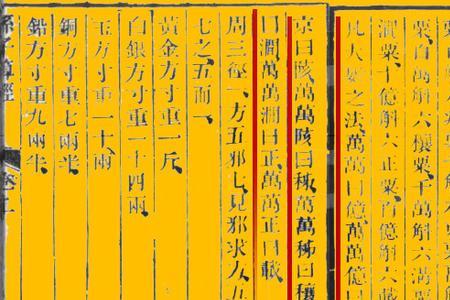 粟百萬斛六穰粟千萬斛六溝
澗粟十億斛六正粟百億斛六載
凡大數之法萬萬曰億萬萬億曰
京曰陔萬萬陔曰秭萬萬秭曰穰
曰澗萬萬澗曰正萬萬正曰載
周三徑一方五邪七見邪求方五
七之五而一
黃金方寸重一斤
白銀方寸重一十四兩
玉方寸重一十兩
銅方寸重七兩半
鉛方寸重九兩半
孫子算經 卷上